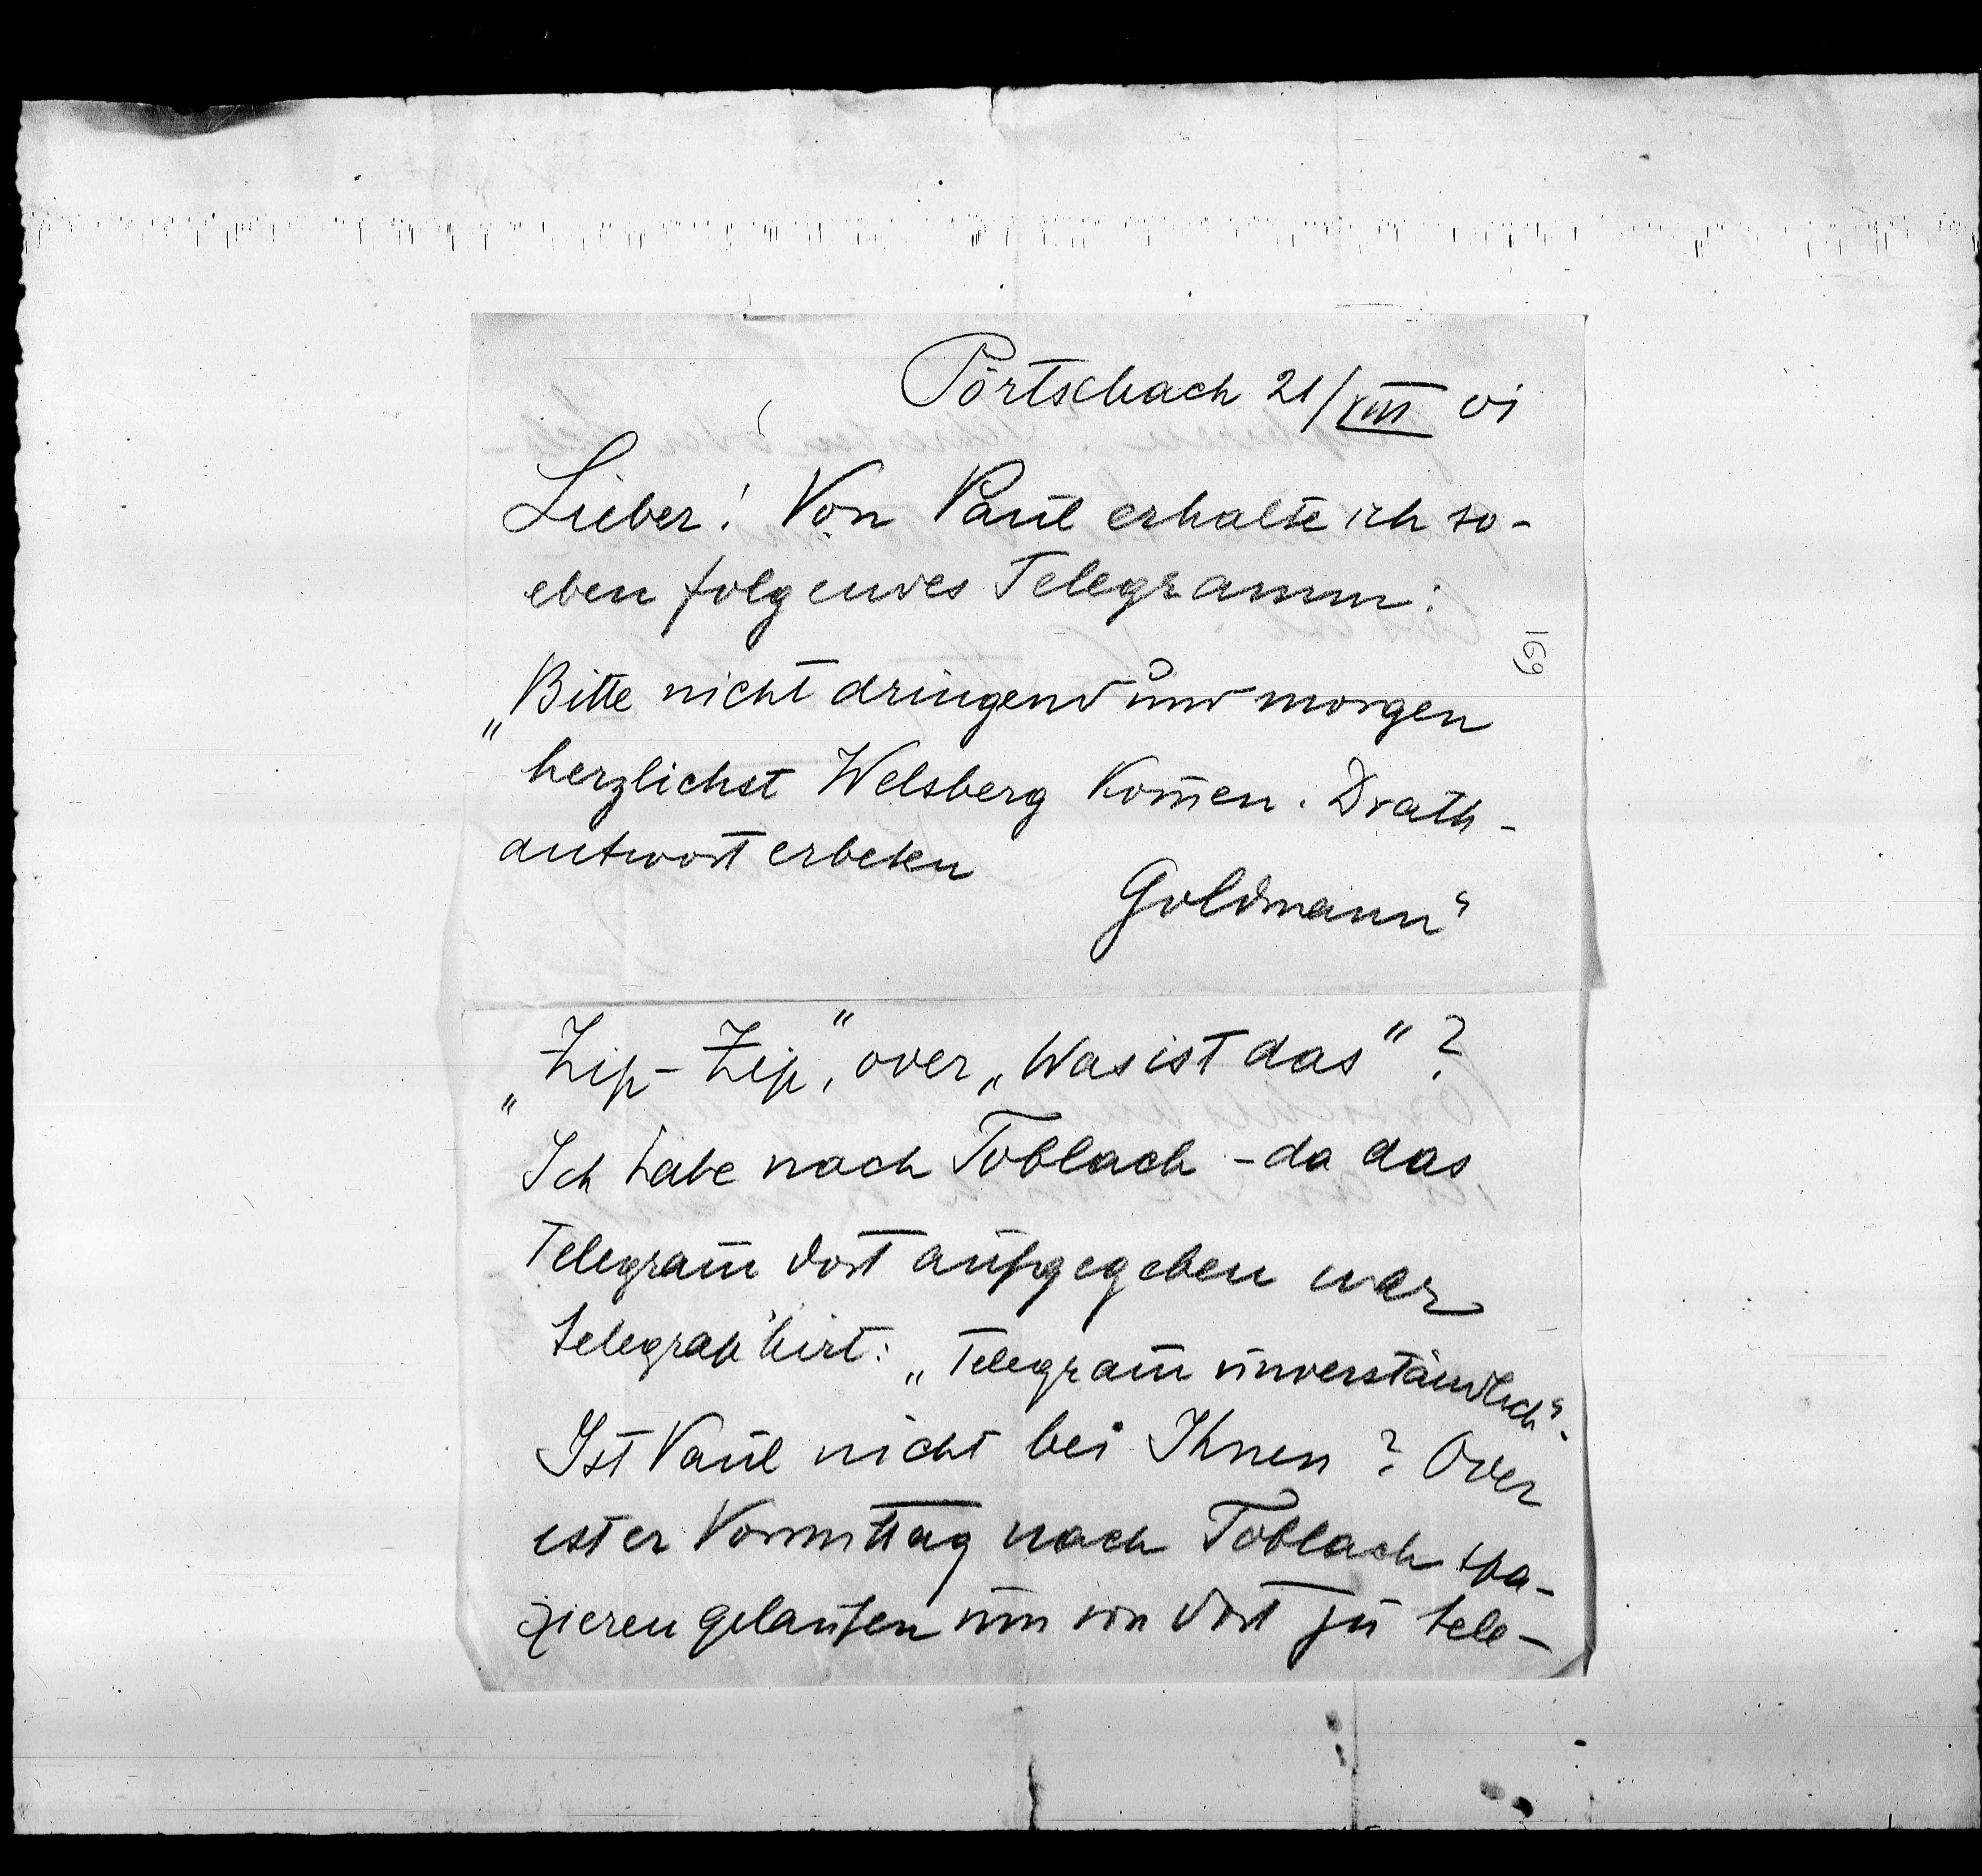 Pörtschach 21/VIII 01
Lieber! Von Paul erhalte ich so-
eben folgendes Telegramm:
„Bitte nicht dringend und morgen
herzlichst Welsberg kom̄en. Drath-
antwort erbeten
Goldmann“
„Zip-Zip,“ oder „Was ist das“?
Ich habe nach Toblach – da das
Telegram̄ dort aufgegeben war
telegraphirt: „Telegram̄ unverständlich“.
Ist Paul nicht bei Ihnen? Oder
ist er Vormittag nach Toblach spa-
zieren gelaufen um von dort zu tele-
169